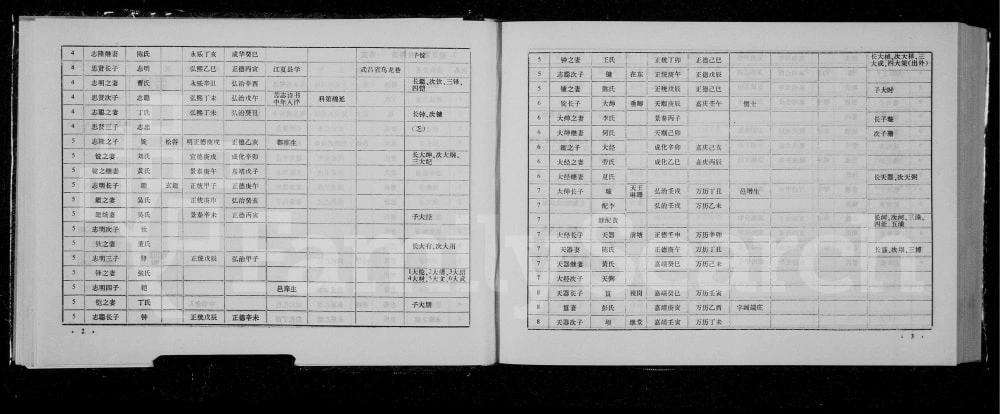 4 志隆继妻 陈氏 永乐丁亥 成华癸巳 子铉
4 思贤长子 志明 弘熙乙巳 正德丙寅 江夏县学 武昌省乌龙巷
4 志明之妻 曹氏 永乐辛丑 弘治辛酉 长鑑,次钦,三铎,
四铠
4 思贤次子 志聪 弘熙丁未 弘治戊午 苦志诗书 科第绵延
中年入泮
4 志聪之妻 丁氏 弘熙丁未 弘治癸丑 长钟,次镛
4 思贤三子 志忠 (乏)
5 志隆之子 铉 松谷 明正德庚戌 正德乙亥 郡庠生
5 铉之妻 刘氏 宣德庚戌 成化辛卯 长大绅,次大纲,
三大纪
5 铉之继妻 黄氏 景泰庚午 嘉靖戊子
5 志明长子 鑑 正统甲子 正德庚午
5 鑑之妻 吴氏 正统庚申 弘治癸亥
5 鑑继妻 吴氏 景泰辛未 正德丙寅 子大经
5 志明次子 钦
5 钦之妻 董氏 长大有,次大用
5 志明三子 铎 正统戊辰 弘治甲子
5 铎之妻 张氏
5 志明四子 铠 邑庠生
5 铠之妻 丁氏 子大朋
5 志聪长子 钟 正统戊辰 正德辛未
· 2 ·
5 钟之妻 王氏 正统丁卯 正德己巳
5 志聪次子 镛 在东 正统庚午 正德戊辰
5 镛之妻 陈氏 正统戊辰 正德己巳 子大时
6 铉长子 大绅 垂卿 天顺庚辰 嘉庆壬午 儒士
6 大绅之妻 李氏 景泰丙子 长子
6 大绅继妻 何氏 天顺己卯 次子
6 鑑之子 大经 成化辛卯 嘉庆己亥
6 大经之妻 劳氏 成化乙巳 嘉庆丙辰
6 大经继妻 夏氏 长天器,次天弼
7 大绅长子 天王 弘治壬戌 万历丁丑 邑增生
7 配李 弘治壬戌 万历乙未
7 继配黄
7 大经长子 天器 正德壬申 万历辛卯
7 天器妻 陈氏 正德庚午 万历丁丑
7 天器继妻 黄氏 嘉靖癸巳 万历己未
7 大经次子 天弼
8 天器长子 嘉靖癸巳 万历壬寅
8 彭氏 嘉靖庚寅 万历乙酉 字画端庄
8 天器次子 继堂 嘉靖壬寅 万历丁未
· 3 ·
FamilySearch